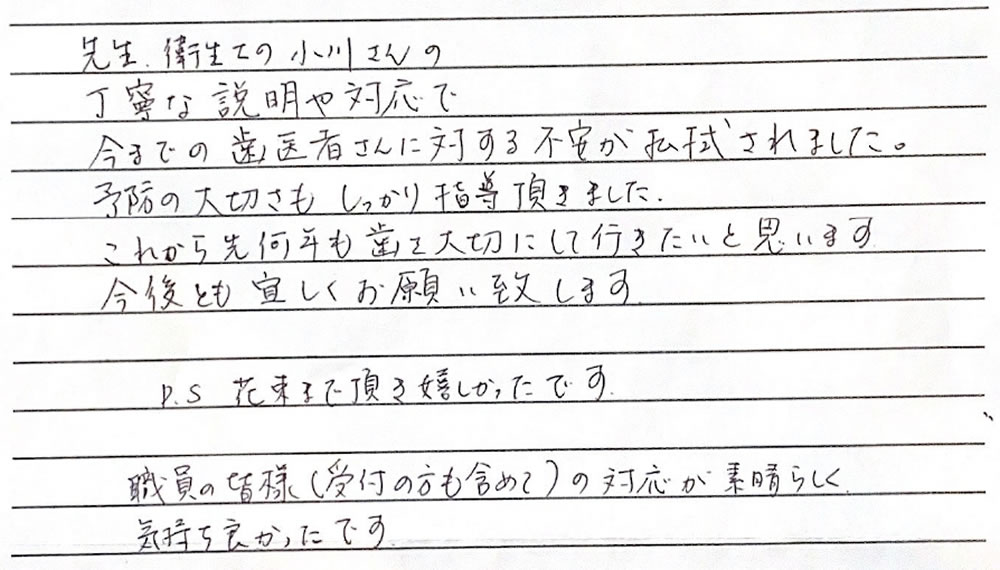 先生、衛生士の小川さんの
丁寧な説明や対応で
今までの歯医者さんに対する不安が払拭されました。
予防の大切さもしっかり指導頂きました.
これから先何年も歯を大切にして行きたいと思います
今後とも宜しくお願い致します.
P.S 花束まで頂き嬉しかったです.
職員の皆様(受付の方も含めて)の対応が素晴らしく
気持ち良かったです